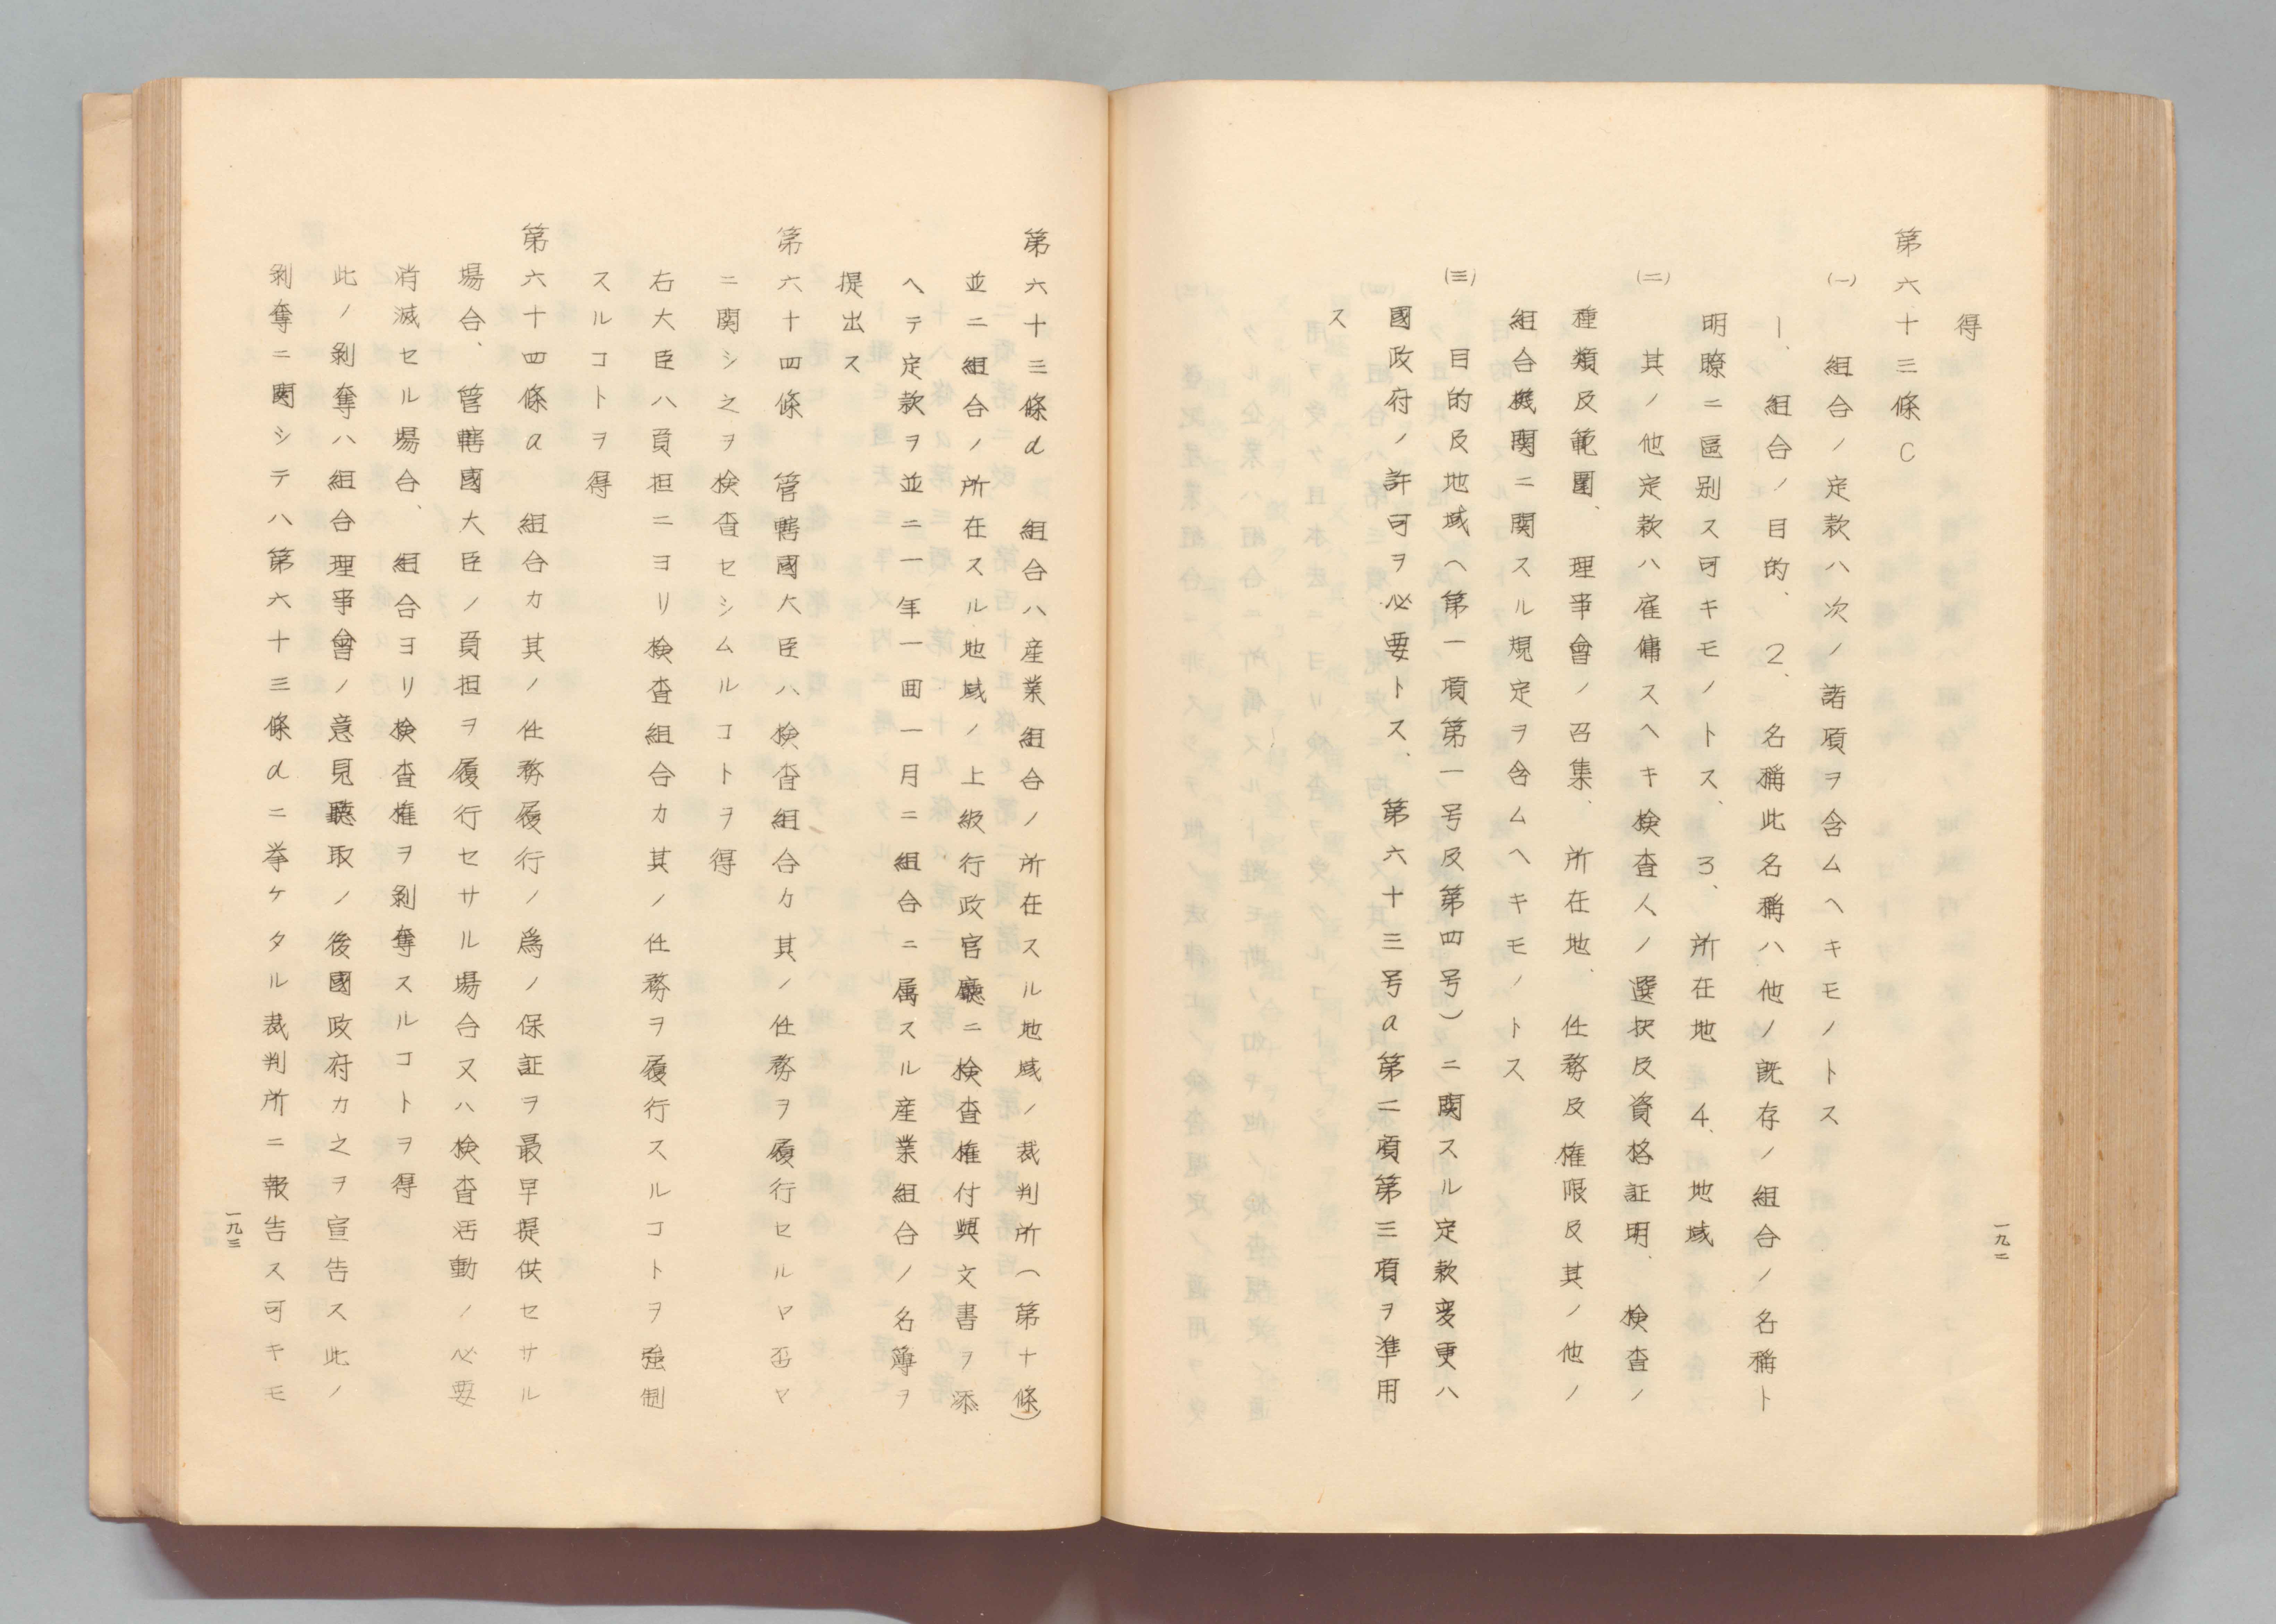 得
第六十三條C
(一) 組合ノ定款ハ次ノ諸項ヲ含ムヘキモノトス
1、組合ノ目的、2、名稱此名稱ハ他ノ既存ノ組合ノ名稱ト
明瞭ニ區別ス可キモノトス、3、所在地 4、地域
(二) 其ノ他定款ハ雇傭スヘキ検査人ノ選択及資格証明、検査ノ
種類及範圍、理事會ノ召集、所在地、任務及権限及其ノ他ノ
組合機関ニ関スル規定ヲ含ムヘキモノトス
(三) 目的及地域(第一項第一号及第四号)ニ関スル定款変更ハ
國政府ノ許可ヲ必要トス、第六十三号a第二項第三項ヲ準用
ス
一九二
第六十三條d 組合ハ産業組合ノ所在スル地域ノ裁判所(第十條)
並ニ組合ノ所在スル地域ノ上級行政官廳ニ検査権付與文書ヲ添
ヘテ定款ヲ並ニ一年一囬一月ニ組合ニ属スル産業組合ノ名簿ヲ
提出ス
第六十四條 管轄國大臣ハ検査組合カ其ノ任務ヲ履行セルヤ否ヤ
ニ関シ之ヲ検査セシムルコトヲ得
右大臣ハ負担ニヨリ検査組合カ其ノ任務ヲ履行スルコトヲ強制
スルコトヲ得
第六十四條a 組合カ其ノ任務履行ノ為ノ保証ヲ最早提供セサル
場合、管轄國大臣ノ負担ヲ履行セサル場合又ハ検査活動ノ必要
消滅セル場合、組合ヨリ検査権ヲ剝奪スルコトヲ得
此ノ剝奪ハ組合理事會ノ意見聽取ノ後國政府カ之ヲ宣告ス此ノ
剝奪ニ関シテハ第六十三條dニ挙ケタル裁判所ニ報告ス可キモ
一九三